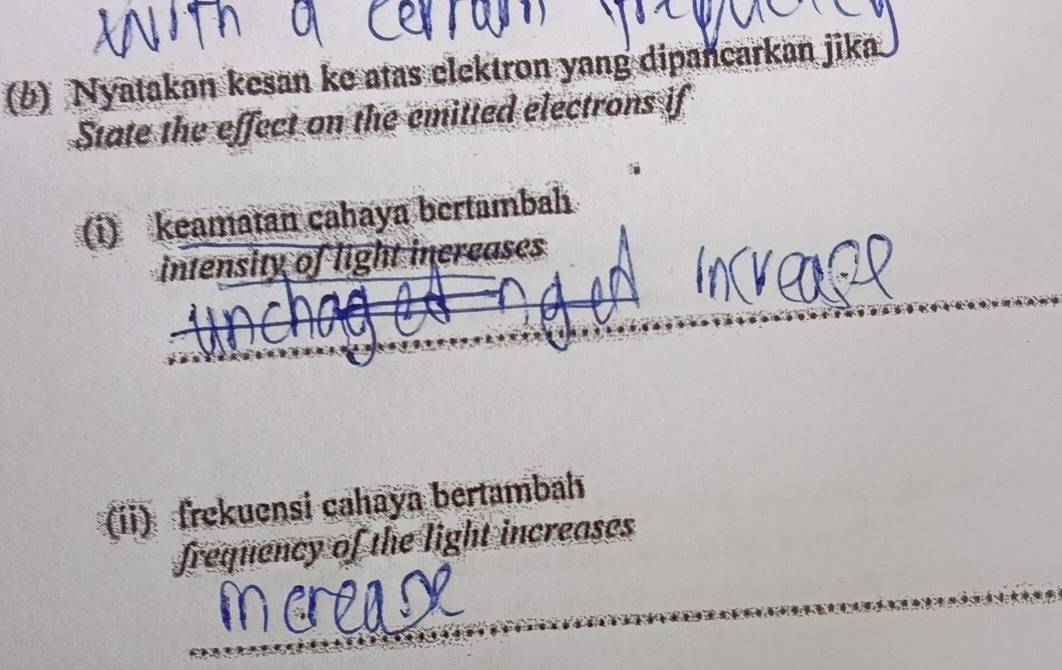 with a certain frequency
(b) Nyatakan kesan ke atas elektron yang dipancarkan jika
State the effect on the emitted electrons if
(i) keamatan cahaya bertambah
intensity of light increases
unchaged nged increase
(ii) frekuensi cahaya bertambah
frequency of the light increases
increase